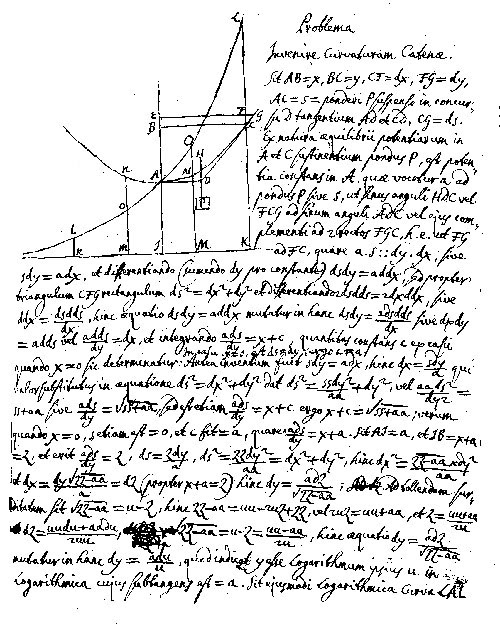 Problema
Invenire Curvaturam Catenæ.
Sit AB=x, BC=y, CF=dx, FG=dy,
AC=s=ponderi P suspenso in concur-
su D tangentium AD et CD, CG=ds.
Ex natura æquilibrii potentiarum in
A et C sustinentium pondus P, est poten-
tia constans in A, quæ vocetur a ad
pondus P sive s, ut sinus anguli HDC vel
FCG ad sinum anguli ADC vel ejus com-
plementi ad 2 rectos FGC, h.e. ut FG
ad FC, quare a. s :: dy. dx, sive
sdy=adx, et differentiando (sumendo dy pro constante) dsdy=addx, sed propter
triangulum CFG rectangulum ds²=dx²+dy² et differentiando 2dsdds=2dxddx, sive
ddx=dsdds/dx, hinc æquatio dsdy=addx mutatur in hanc dsdy=adsdds/dx sive dxdy
=adds vel adds/dy=dx, et integrando ads/dy=x+c, quantitas constans c ex casu
quando x=0 sic determinatur: Antea inventum fuit sdy=adx, hinc dx=sdy/a qui
valor substitutus in æquatione ds²=dx²+dy² dat ds²=ssdy²/aa+dy², vel aads²/dy²=
ss+aa sive ads/dy=√ss+aa, sed est etiam ads/dy=x+c. ergo x+c=√ss+aa, verum
quando x=0, s etiam est=0, et c fit=a, quare ads/dy=x+a. Sit AJ=a, et JB=x+a
=z, et erit ads/dy=z, ds=zdy/a, ds²=zzdy²/aa=dx²+dy², hinc dx²=zz-aa×dy²/aa
et dx=dy√zz-aa/a=dz (propter x+a=z) hinc dy=adz/√zz-aa; Ad tollendam sur-
ditatem sit √zz-aa=u-z, hinc zz-aa=uu-2uz+zz, vel 2uz=uu+aa, et z=uu+aa/2u
dz=uudu-aadu/2uu, √zz-aa=u-z=uu-aa/2u, hinc æquatio dy=adz/√zz-aa
mutatur in hanc dy=adu/u, quod indicat y esse Logarithmum ipsius u in
Logarithmica cujus subtangens est=a. Sit ejusmodi Logarithmica Curva LAL